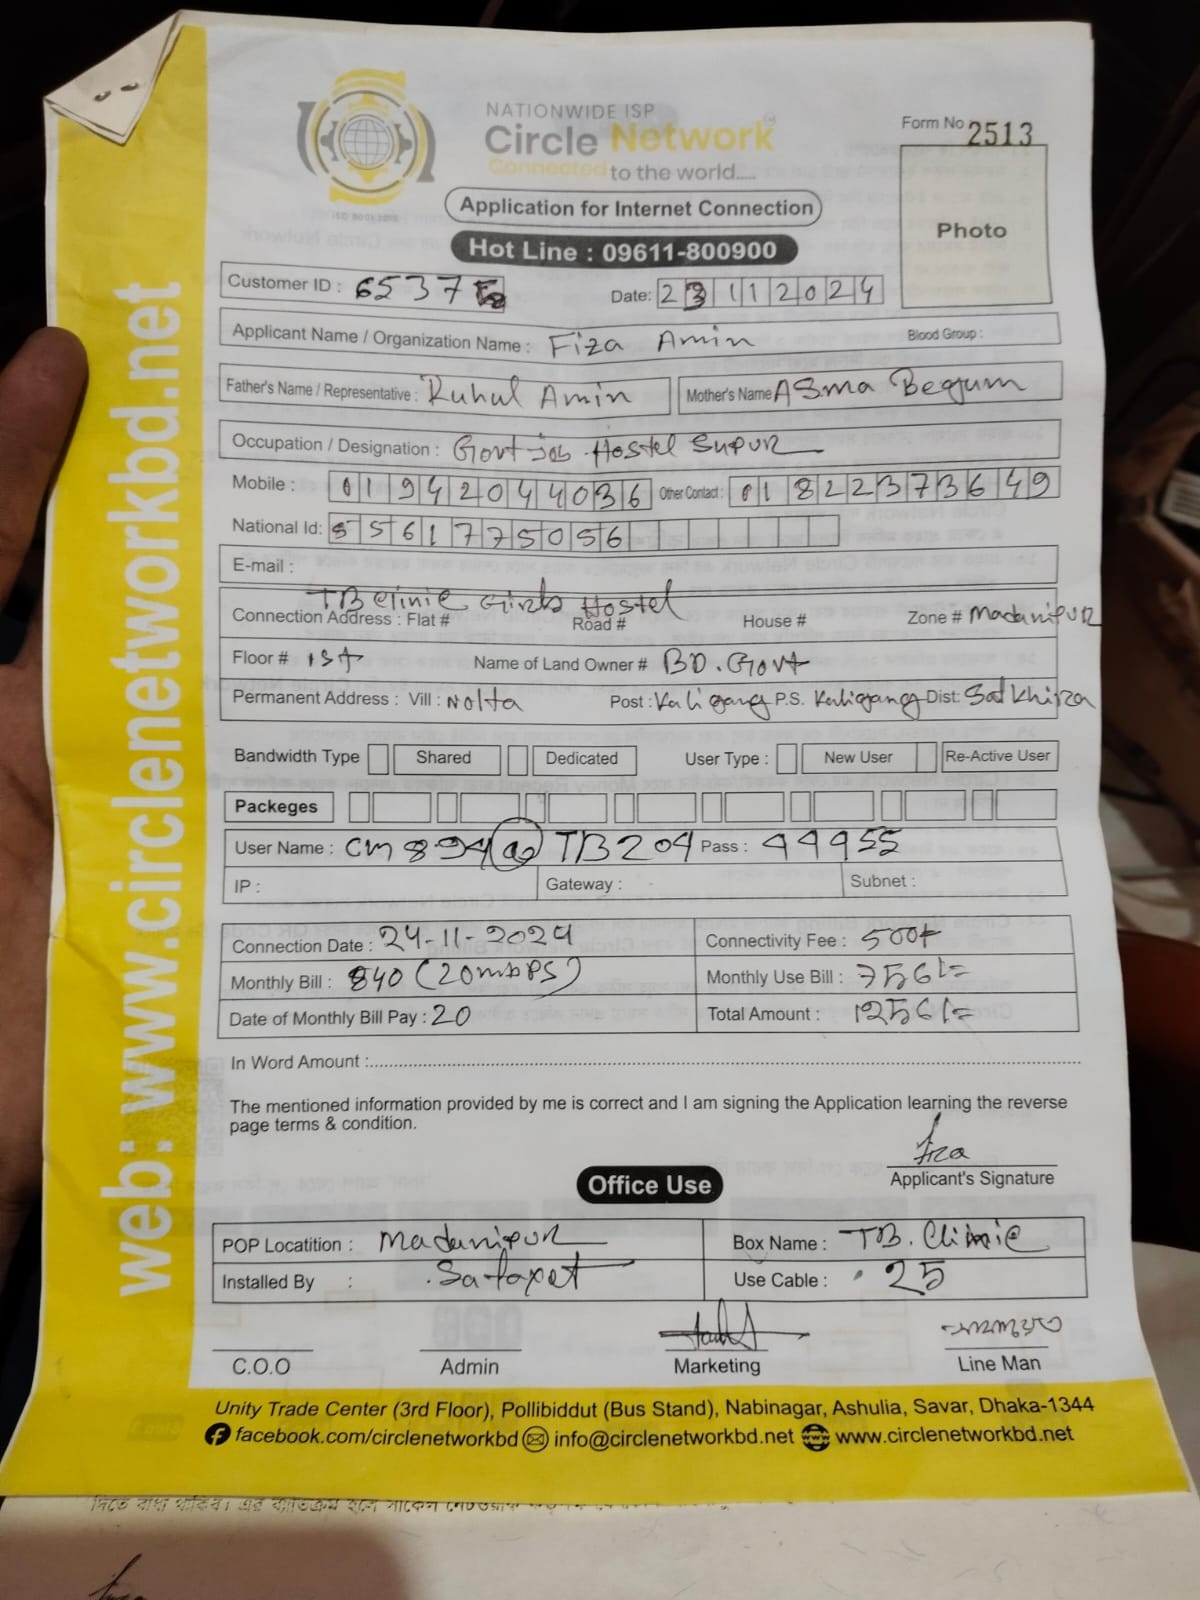 web: www.circlenetworkbd.net
NATIONWIDE ISP
Circle Network
Connected to the world.....
ISO 9001:2015
Form No 2513
Photo
Application for Internet Connection
Hot Line : 09611-800900
Customer ID : 6537
Date: 23112024
Applicant Name / Organization Name : Fiza Amin Blood Group :
Father's Name / Representative : Ruhul Amin Mother's Name Asma Begum
Occupation / Designation : Govt job Hostel Supur
Mobile : 01942044036 Other Contact : 01822373649
National Id: 5561775056
E-mail :
TB Clinic Girls Hostel
Connection Address : Flat # Road # House # Zone # Madanipur
Floor # 1st Name of Land Owner # BD. Govt
Permanent Address : Vill : Nolta Post : Kaligang P.S. Kaligang Dist: Satkhira
Bandwidth Type Shared Dedicated User Type : New User Re-Active User
Packeges
User Name : cm894@TB204 Pass : 44955
IP : Gateway : Subnet :
Connection Date : 24-11-2024 Connectivity Fee : 500/-
Monthly Bill : 840 (20mbPS) Monthly Use Bill : 756/=
Date of Monthly Bill Pay : 20 Total Amount : 1256/=
In Word Amount :
The mentioned information provided by me is correct and I am signing the Application learning the reverse
page terms & condition.
Fiza
Applicant's Signature
Office Use
POP Locatition : Madanipur Box Name : TB. Clinic
Installed By : Use Cable : 25
C.O.O Admin Marketing Line Man
Unity Trade Center (3rd Floor), Pollibiddut (Bus Stand), Nabinagar, Ashulia, Savar, Dhaka-1344
facebook.com/circlenetworkbd info@circlenetworkbd.net www.circlenetworkbd.net